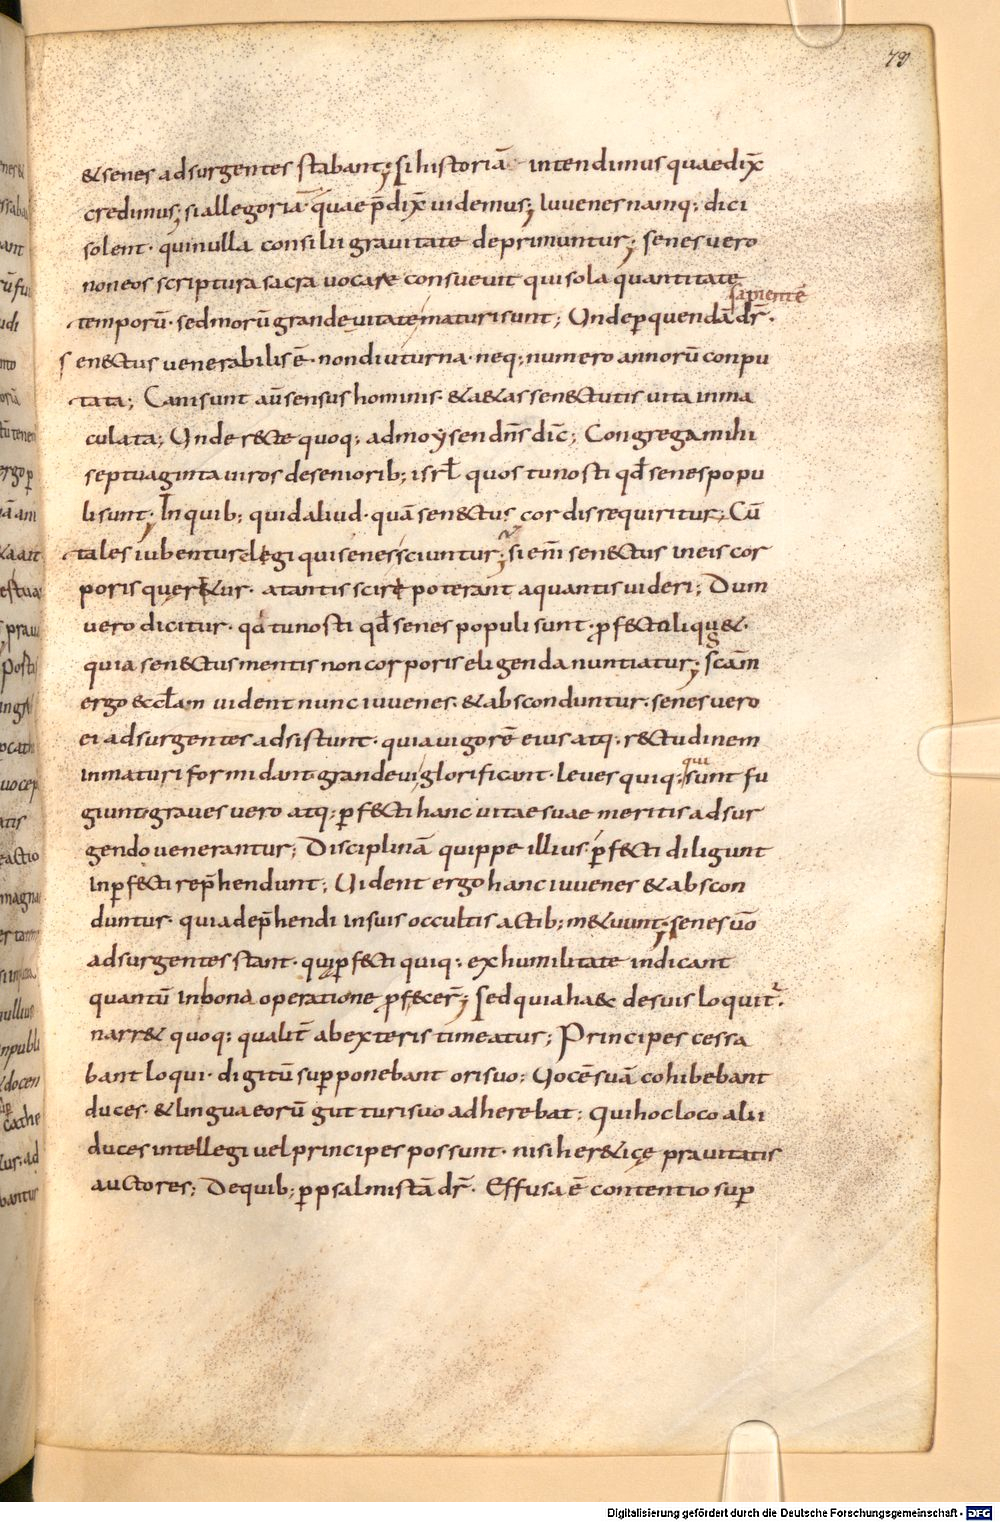 79
&senes adsurgentes stabant; si historiā intendimus quaedix̄
credimus; si allegoriā quae p̄dix̄ uidemus; Iuuenes namq; dici
solent· qui nulla consilii grauitate deprimuntur; senes uero
non eos scriptura sacra uocare consueuit qui sola quantitate
sapientē
temporū· sed morū grandeuitate maturi sunt; Unde ꝑ quendā dr̄·
senectus uenerabilis ē· non diuturna· neq; numero annorū conpu
tata; Cani sunt aū sensus hominis· & aetas senectutis uita inma
culata; Unde recte quoq; ad moysen dn̄s dic̄; Congrega mihi
septuaginta uiros de seniorib; isrł quos tu nosti qđ senes popu
li sunt· In quib; quid aliud· quā senectus cordis requiritur; Cū
tales iubentur elegi qui senes sciuntur; si em̄ senectus in eis cor
poris quęrer&ur· a tantis scire poterant a quantis uideri; Dum
uero dicitur· qđ tu nosti qđ senes populi sunt· ꝓfecto liqu&·
quia senectus mentis non corporis eligenda nuntiatur; scām
ergo eccłam uident nunc iuuenes· & absconduntur· senes uero
ei adsurgentes adsistunt· quia uigorē eius atq; rectudinem
inmaturi formidant grandeui glorificant· leues quiq; sunt fu
qui
giunt· graues uero atq; ꝑfecti hanc uitae suae meritis adsur
gendo uenerantur; Disciplinā quippe illius ꝑfecti diligunt
inꝑfecti rep̄hendunt; Uident ergo hanc iuuenes & abscon
duntur· quia dep̄hendi in suis occultis actib; m&uunt; senes ūo
adsurgentes stant· quiꝑfecti quiq; ex humilitate indicant
quantū in bona operatione ꝓfecer̄; Sed quia haec de suis loquit᷑·
narr& quoq; qualit̄ ab exteris timeatur; Principes cessa
bant loqui· digitū supponebant ori suo; Uocē suā cohibebant
duces· & lingua eorū gutturi suo adherebat; Qui hoc loco alii
duces intellegi uel principes possunt· nisi her&icę prauitatis
auctores; De quib; ꝑ psalmistā dr̄· Effusa ē contentio suꝑ
Digitalisierung gefördert durch die Deutsche Forschungsgemeinschaft - DFG